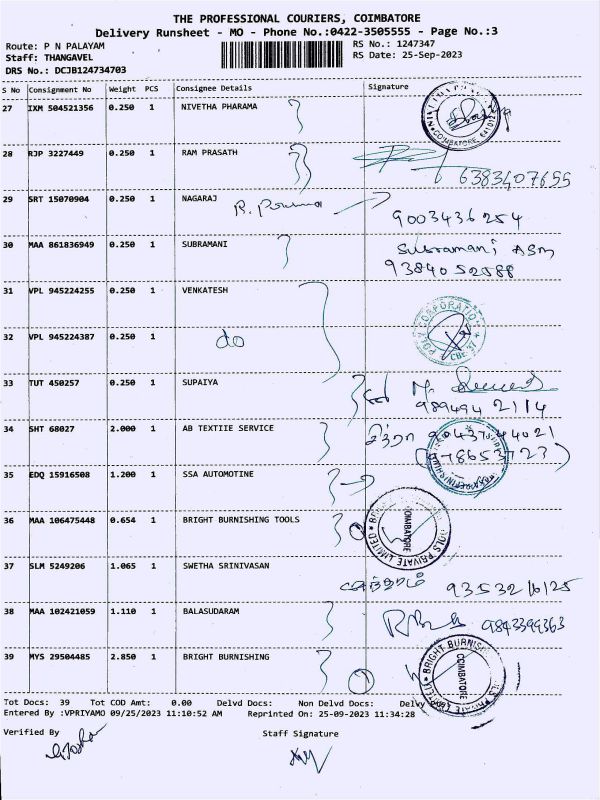 THE PROFESSIONAL COURIERS, COIMBATORE
Delivery Runsheet - MO - Phone No.:0422-3505555 - Page No.:3
Route: P N PALAYAM RS No.: 1247347
Staff: THANGAVEL RS Date: 25-Sep-2023
DRS No.: DCJB124734703
S No Consignment No Weight PCS Consignee Details Signature
27 IXM 504521356 0.250 1 NIVETHA PHARAMA
COIMBATORE
28 RJP 3227449 0.250 1 RAM PRASATH
6383407655
29 SRT 15070904 0.250 1 NAGARAJ
9003436254
30 MAA 861836949 0.250 1 SUBRAMANI Subramani
9384052588
31 VPL 945224255 0.250 1 VENKATESH
POLY CORPORATION
32 VPL 945224387 0.250 1 do
33 TUT 450257 0.250 1 SUPAIYA
989494 2114
34 SHT 68027 2.000 1 AB TEXTIIE SERVICE
35 EDQ 15916508 1.200 1 SSA AUTOMOTINE
36 MAA 106475448 0.654 1 BRIGHT BURNISHING TOOLS
COIMBATORE
37 SLM 5249206 1.065 1 SWETHA SRINIVASAN
38 MAA 102421059 1.110 1 BALASUDARAM 9843399363
39 MYS 29504485 2.850 1 BRIGHT BURNISHING
BRIGHT BURNISHING COIMBATORE
Tot Docs: 39 Tot COD Amt: 0.00 Delvd Docs: Non Delvd Docs:
Entered By :VPRIYAMO 09/25/2023 11:10:52 AM Reprinted On: 25-09-2023 11:34:28
Verified By Staff Signature